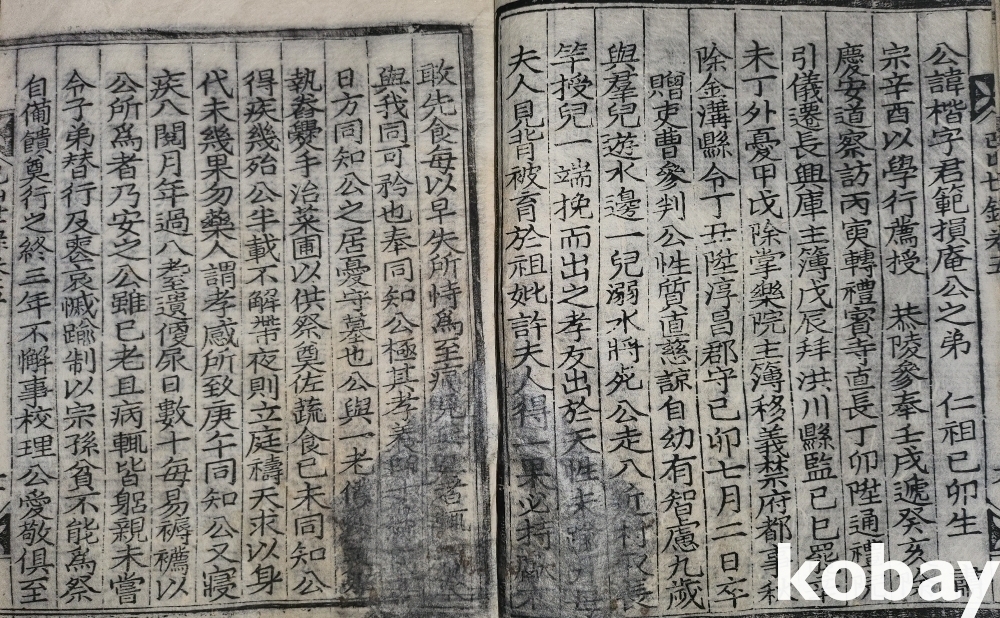 公諱楷字君範損庵公之弟 仁祖己卯生 肅
宗辛酉以學行薦授 恭陵參奉壬戌遞癸亥
慶安道察訪丙寅轉禮賓寺直長丁卯陞通禮
引儀遷長興庫主簿戊辰拜洪川縣監己巳罷
未丁外憂甲戌除掌樂院主簿移義禁府都事
除金溝縣令丁丑陞淳昌郡守己卯七月二日卒
贈吏曹參判公性質直慈諒自幼有智慮九歲
與羣兒遊水邊一兒溺水將死公走入近村以長
竿授兒一端挽而出之孝友出於天性未
夫人見背被育於祖妣許夫人得一果必持
敢先食每以早失所恃爲至痛
與我同可矜也奉同知公極其孝
日方同知公之居憂守墓也公與一老
執爨變手治菜圃以供祭奠佐蔬食己未同知公
得疾幾殆公半載不解帶夜則立庭禱天求以身
代未幾果勿藥人謂孝感所致庚午同知公又寢
疾八閱月年過八耋遺傁尿日數十每易褥襦以
公所爲者乃安之公雖已老且病輒皆躬親未嘗
令子弟替行及喪哀慽踰制以宗孫貧不能爲祭
自備饋奠行之終三年不懈事校理公愛敬俱至
kobay